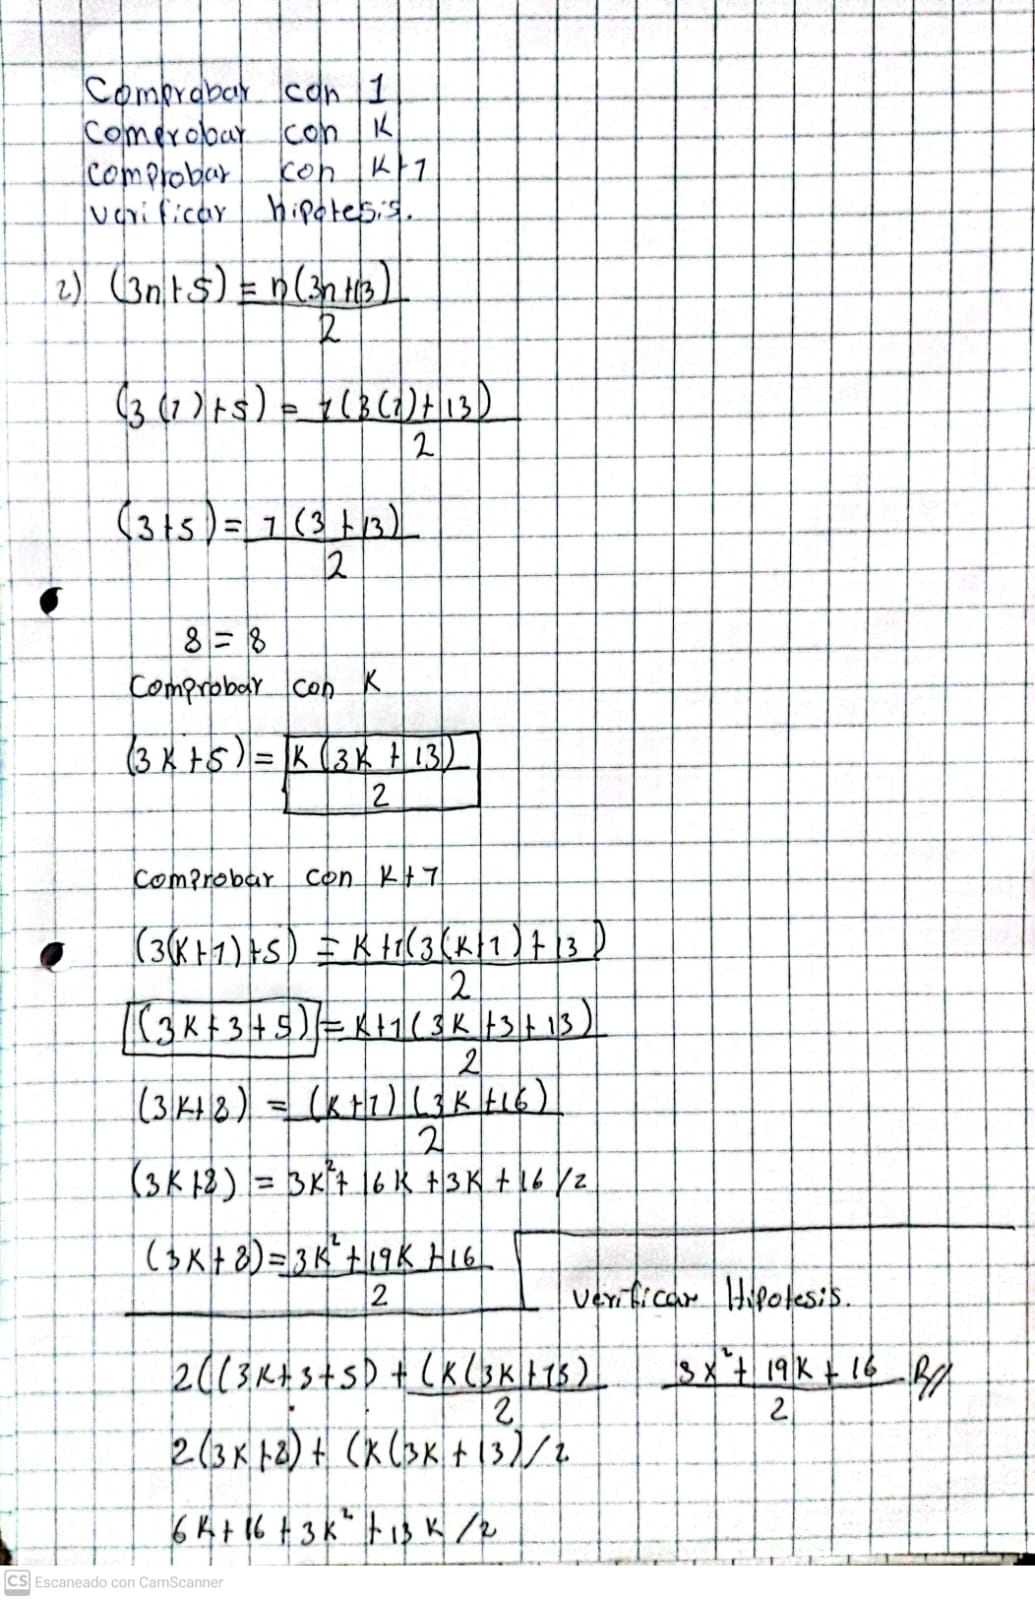 Comprobar con 1
Comprobar con K
comprobar con K+1
verificar hipotesis.
2) (3n+5) = n(3n+13)
2
(3(1)+5) = 1(3(1)+13)
2
(3+5) = 1(3+13)
2
8 = 8
Comprobar con K
(3K+5) = K(3K+13)
2
Comprobar con K+1
(3(K+1)+5) = K+1(3(K+1)+13)
2
(3K+3+5) = K+1(3K+3+13)
2
(3K+8) = (K+1)(3K+16)
2
(3K+8) = 3K²+16K+3K+16/2
(3K+8) = 3K²+19K+16
2
verificar Hipotesis.
2((3K+3+5)+(K(3K+13)
2
3x²+19K+16 R//
2
2(3K+8)+(K(3K+13)/2
6K+16+3K²+13K/2
CS Escaneado con CamScanner